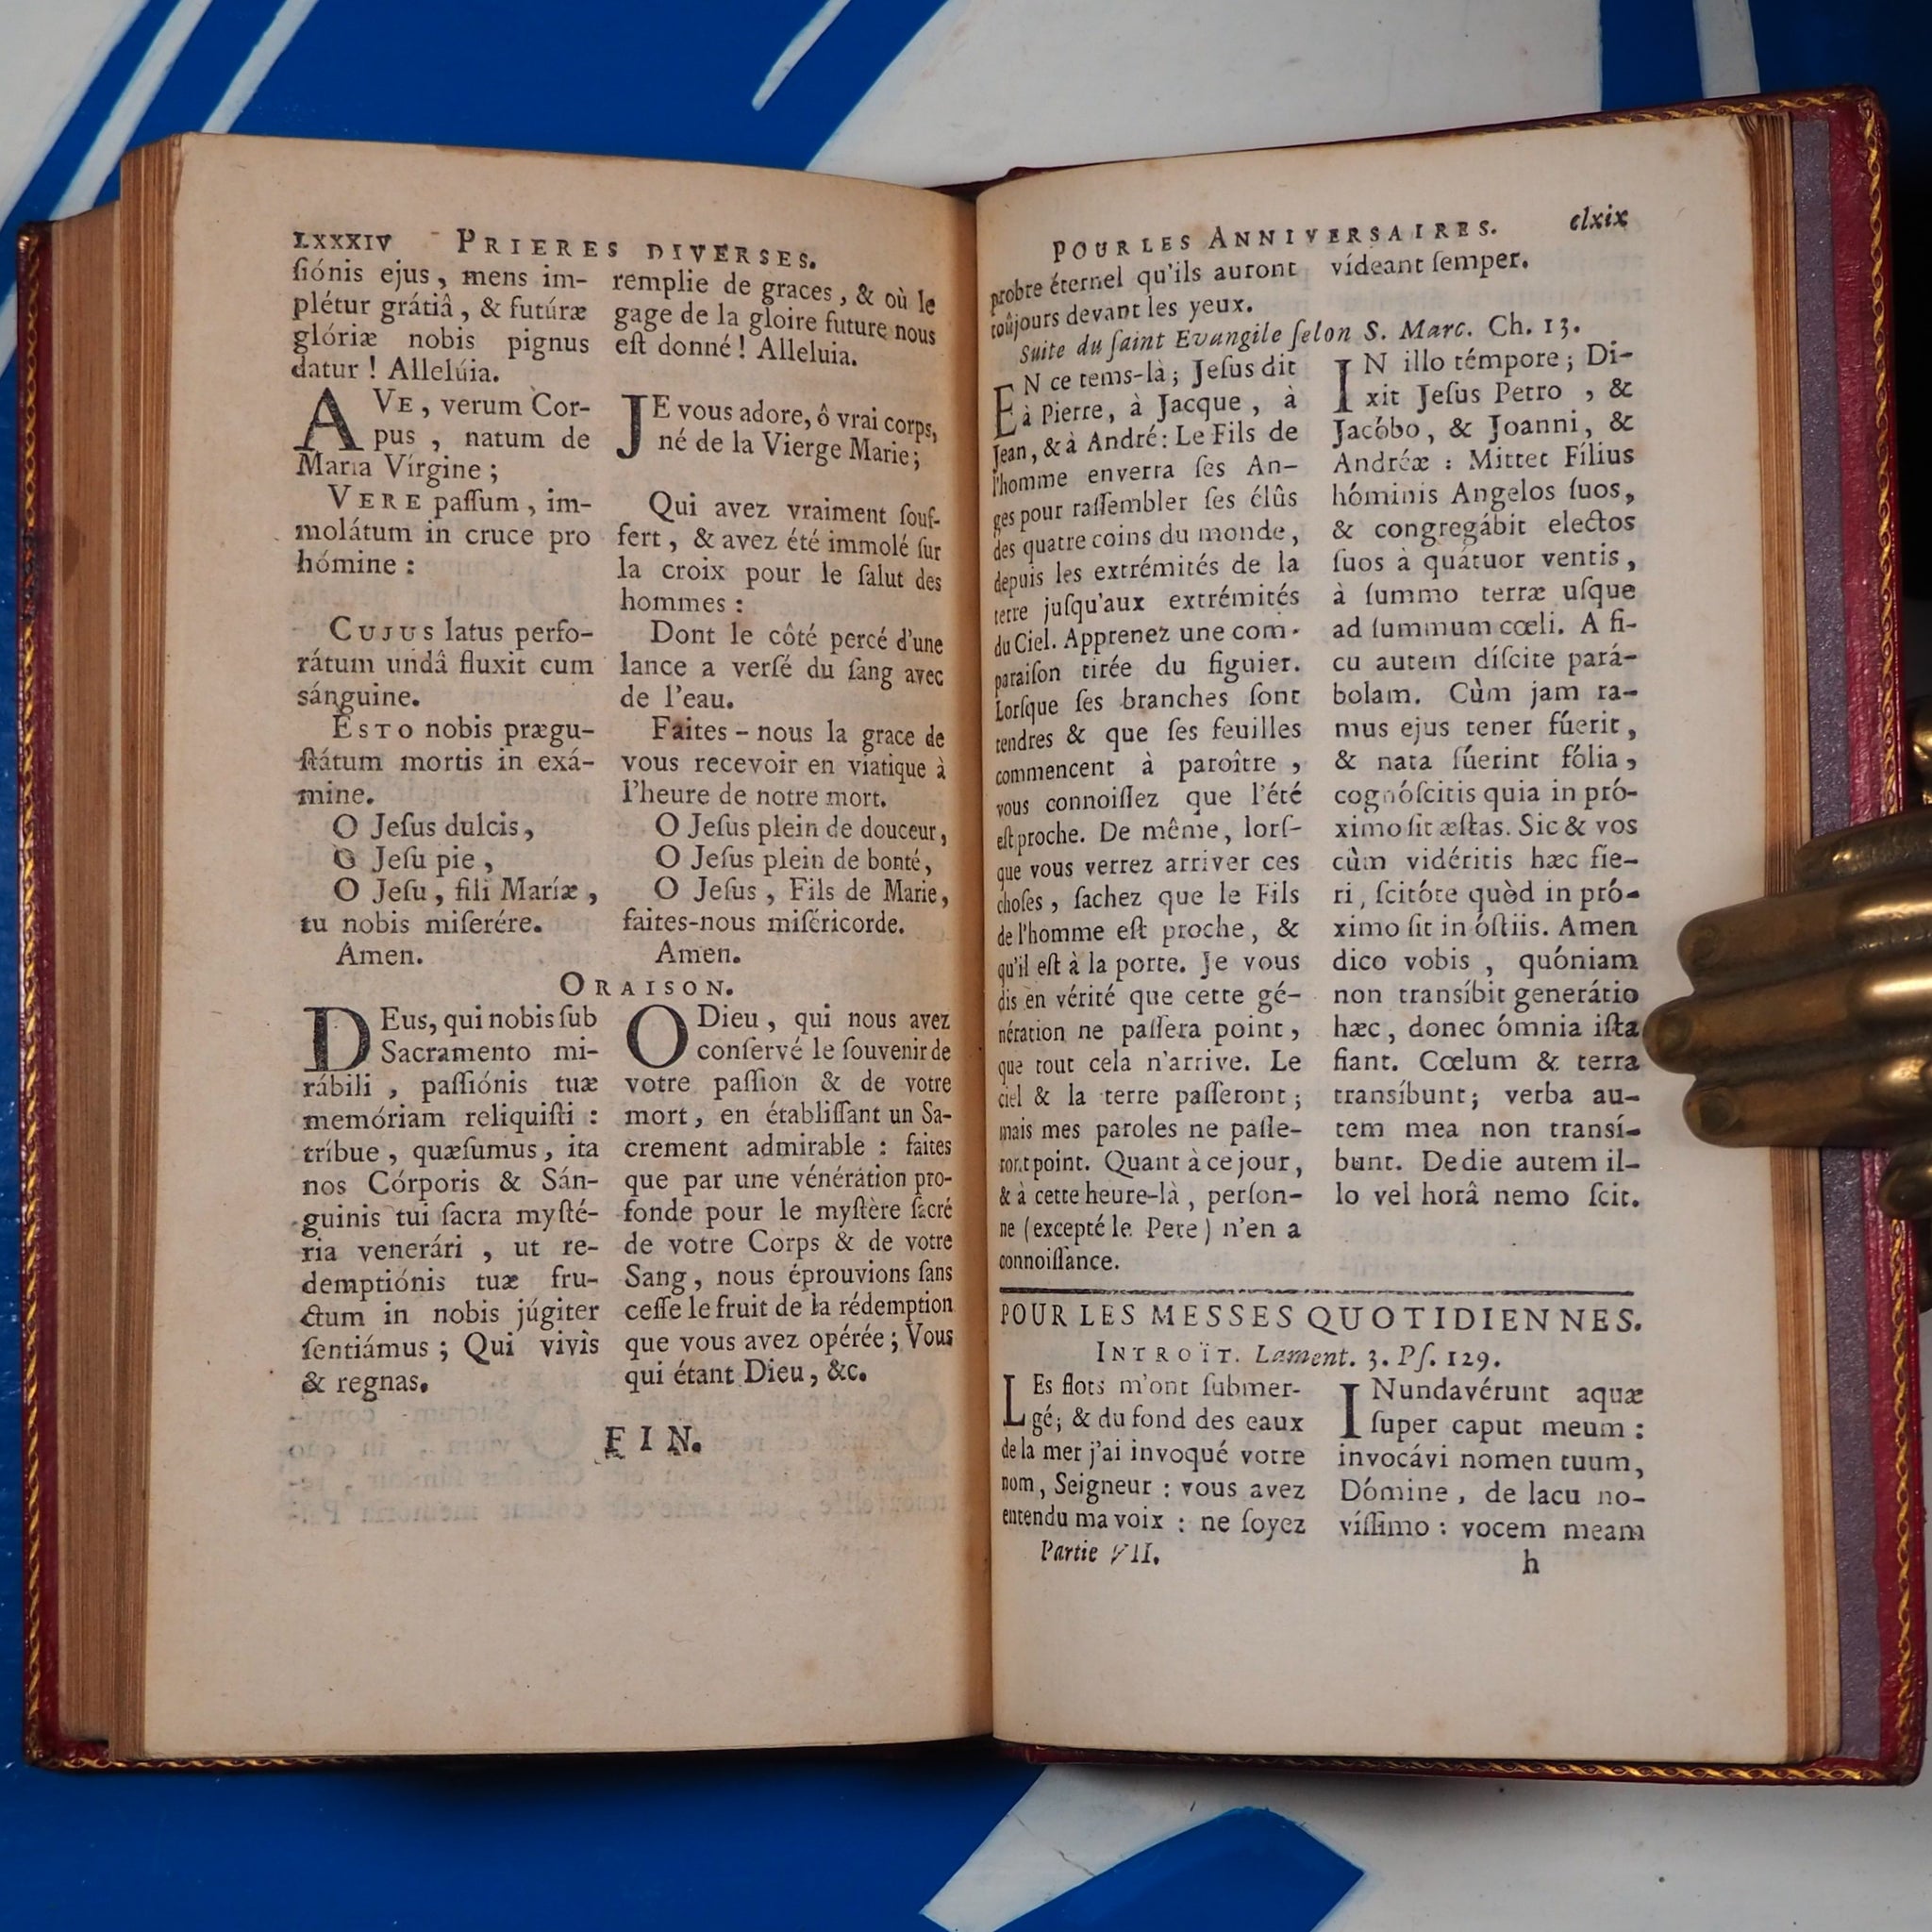 LXXXIV PRIERES DIVERSES.
ſiónis ejus, mens im-
plétur grátiâ, & futúræ
glóriæ nobis pignus
datur ! Allelúia.
AVE, verum Cor-
pus, natum de
Maria Vírgine ;
VERE paſſum, im-
molátum in cruce pro
hómine :
CUJUS latus perfo-
rátum undâ fluxit cum
sánguine.
ESTO nobis prægu-
ſtátum mortis in exá-
mine.
O Jeſus dulcis,
O Jeſu pie,
O Jeſu, fili Maríæ,
tu nobis miſerére.
Amen.
remplie de graces, & où le
gage de la gloire future nous
eſt donné ! Alleluia.
JE vous adore, ô vrai corps,
né de la Vierge Marie ;
Qui avez vraiment ſouf-
fert, & avez été immolé ſur
la croix pour le ſalut des
hommes :
Dont le côté percé d'une
lance a verſé du ſang avec
de l'eau.
Faites-nous la grace de
vous recevoir en viatique à
l'heure de notre mort.
O Jeſus plein de douceur,
O Jeſus plein de bonté,
O Jeſus, Fils de Marie,
faites-nous miſéricorde.
Amen.
ORAISON.
DEus, qui nobis ſub
Sacramento mi-
rábili, paſſiónis tuæ
memóriam reliquiſti :
tríbue, quæſumus, ita
nos Córporis & Sán-
guinis tui ſacra myſté-
ria venerári, ut re-
demptiónis tuæ fru-
ctum in nobis júgiter
ſentiámus ; Qui vivis
& regnas.
O Dieu, qui nous avez
conſervé le ſouvenir de
votre paſſion & de votre
mort, en établiſſant un Sa-
crement admirable : faites
que par une vénération pro-
fonde pour le myſtère ſacré
de votre Corps & de votre
Sang, nous éprouvions ſans
ceſſe le fruit de la rédemption
que vous avez opérée ; Vous
qui étant Dieu, &c.
FIN.
POUR LES ANNIVERSAIRES. clxix
probre éternel qu'ils auront
toûjours devant les yeux.
vídeant ſemper.
Suite du ſaint Evangile ſelon S. Marc. Ch. 13.
EN ce tems-là ; Jeſus dit
à Pierre, à Jacque, à
Jean, & à André : Le Fils de
l'homme enverra ſes An-
ges pour raſſembler ſes élûs
des quatre coins du monde,
depuis les extrémités de la
terre juſqu'aux extrémités
du Ciel. Apprenez une com-
paraiſon tirée du figuier.
Lorſque ſes branches ſont
tendres & que ſes feuilles
commencent à paroître,
vous connoiſſez que l'été
eſt proche. De même, lorſ-
que vous verrez arriver ces
choſes, ſachez que le Fils
de l'homme eſt proche, &
qu'il eſt à la porte. Je vous
dis en vérité que cette gé-
nération ne paſſera point,
que tout cela n'arrive. Le
ciel & la terre paſſeront ;
mais mes paroles ne paſſe-
ront point. Quant à ce jour,
& à cette heure-là, perſon-
ne (excepté le Pere) n'en a
connoiſſance.
IN illo témpore ; Di-
xit Jeſus Petro, &
Jacóbo, & Joanni, &
Andréæ : Mittet Fílius
hóminis Angelos ſuos,
& congregábit electos
ſuos à quátuor ventis,
à ſummo terræ uſque
ad ſummum cœli. A fi-
cu autem díſcite pará-
bolam. Cùm jam ra-
mus ejus tener fúerit,
& nata fúerint fólia,
cognóſcitis quia in pró-
ximo ſit æſtas. Sic & vos
cùm vidéritis hæc fie-
ri, ſcitóte quòd in pró-
ximo ſit in óſtiis. Amen
dico vobis, quóniam
non transíbit generátio
hæc, donec ómnia iſta
fiant. Cœlum & terra
transíbunt ; verba au-
tem mea non transí-
bunt. De die autem il-
lo vel horâ nemo ſcit.
POUR LES MESSES QUOTIDIENNES.
INTROÏT. Lament. 3. Pſ. 129.
LEs flots m'ont ſubmer-
gé ; & du fond des eaux
de la mer j'ai invoqué votre
nom, Seigneur : vous avez
entendu ma voix : ne ſoyez
INundavérunt aquæ
ſuper caput meum :
invocávi nomen tuum,
Dómine, de lacu no-
víſſimo : vocem meam
Partie VII.
h